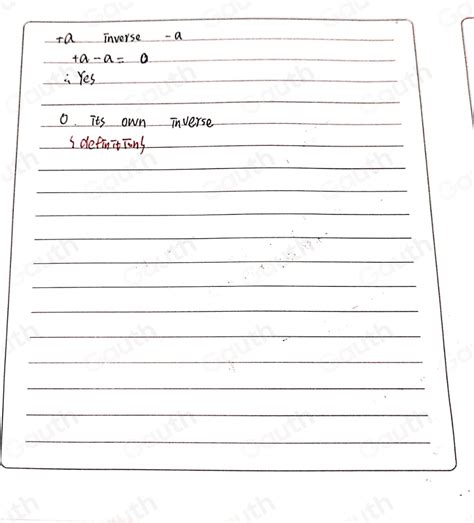 +a inverse -a
+a-a= 0
∴ Yes
0. its own inverse
{definition}